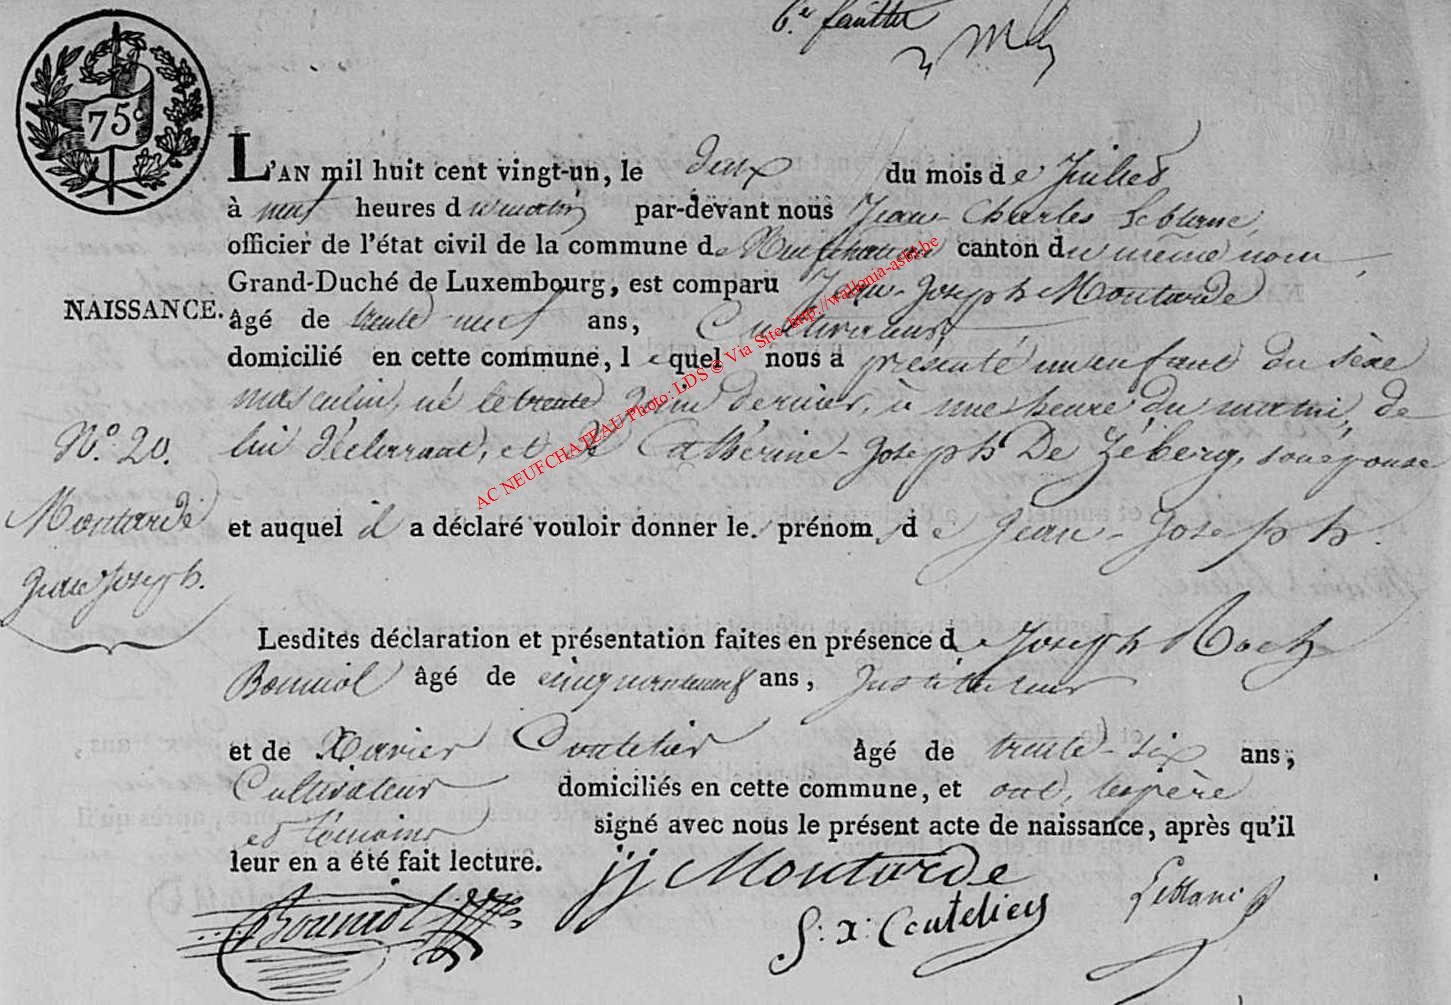 6.e feuillet
75c
L'AN mil huit cent vingt-un, le deux du mois de Juillet
à neuf heures du matin par-devant nous Jean-Charles Leblanc,
officier de l'état civil de la commune de Neufchateau canton du même nom,
Grand-Duché de Luxembourg, est comparu Jean-Joseph Montarde
NAISSANCE.
âgé de trente neuf ans, Cultivateur,
domicilié en cette commune, lequel nous a présenté un enfant du sexe
masculin, né le trente Juin dernier, à une heure du matin, de
N.o 20.
lui déclarant, et de Catherine-Joseph De Zéberg, son épouse
Montarde
Jean Joseph.
et auquel il a déclaré vouloir donner le. prénom de Jean-Joseph.
Lesdites déclaration et présentation faites en présence de Joseph Roch
Bouniol âgé de cinquante neuf ans, Instituteur
et de Xavier Coutelier âgé de trente-six ans;
Cultivateur domiciliés en cette commune, et ont, le père
et témoins signé avec nous le présent acte de naissance, après qu'il
leur en a été fait lecture.
jj Montarde
Bouniol
S: x: Coutelier
Leblanc
AC NEUFCHATEAU Photo: LDS © Via Site: http://wallonia-asbl.be